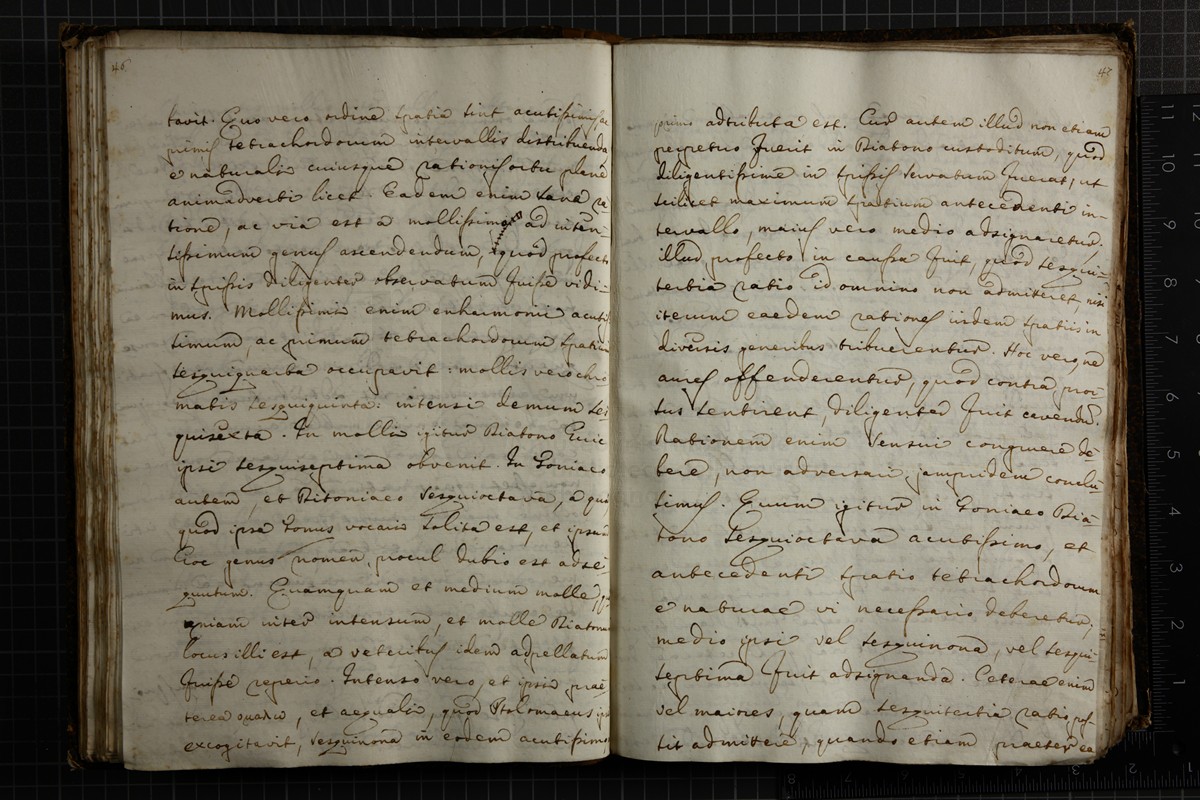 46
tavit. Quo vero ordine spatia sint acutissimis, ac
primis tetrachordorum intervallis distribuenda
e naturali cuiusque rationis ortu plane
animadverti licet. Eadem enim sane ra-
tione, ac via est a mollissimo ad inten-
tissimum genus ascendendum, quod profecto
in spissis diligenter observatum fuisse vidi-
mus. Mollissimi enim enharmonii acutis
simum, ac primum tetrachordorum spatium
sesquiquarta occupavit: mollis vero chro
matis sesquiquinta: intensi demum ses
quisexta. In molli igitur Diatono huic
ipsi sesquiseptima obvenit. In Toniaco
autem, et Ditoniaco sesquioctava, a qua
quod ipsa Tonus vocari solita est, et ipsum
hoc genus nomen, procul dubio est adse-
quutum. Quamquam et medium molle, quo
niam inter intensum, et molle Diatonum
locus illi est, a veteribus idem adpellatum
fuisse reperio. Intenso vero, et ipsi prae
terea, et aequali, quod Ptolomaeus ipse
excogitavit, sesquinona in eodem acutissimo
47
primo adtributa est. Cur autem illud non etiam
perpetuo fuerit in Diatono custoditum, quod
diligentissime in spissis servatum fuerat, ut
scilicet maximum spatium antecedenti in-
tervallo, maius vero medio adsignaretur.
illud profecto in caussa fuit, quod sesqui-
tertia ratio id omnino non admitteret, nisi
iterum eaedem rationes iisdem spatiis in
diversis generibus tribuerentur. Hoc vero, ne
aures offenderentur, quod contra pror
sus sentirent, diligenter fuit cavendum.
Rationem enim sensui congruere de-
bere, non adversari jampridem conclu-
simus. Quum igitur in Toniaco Dia-
tono sesquioctava acutissimo, et
antecedenti spatio tetrachordorum
e naturae vi necessario deberetur,
medio ipsi vel sesquinona, vel sesqui
septima fuit adsignanda. Ceterae enim
vel maiores, quam sesquitertia ratio pos
sit admittere, quando etiam praeter ea